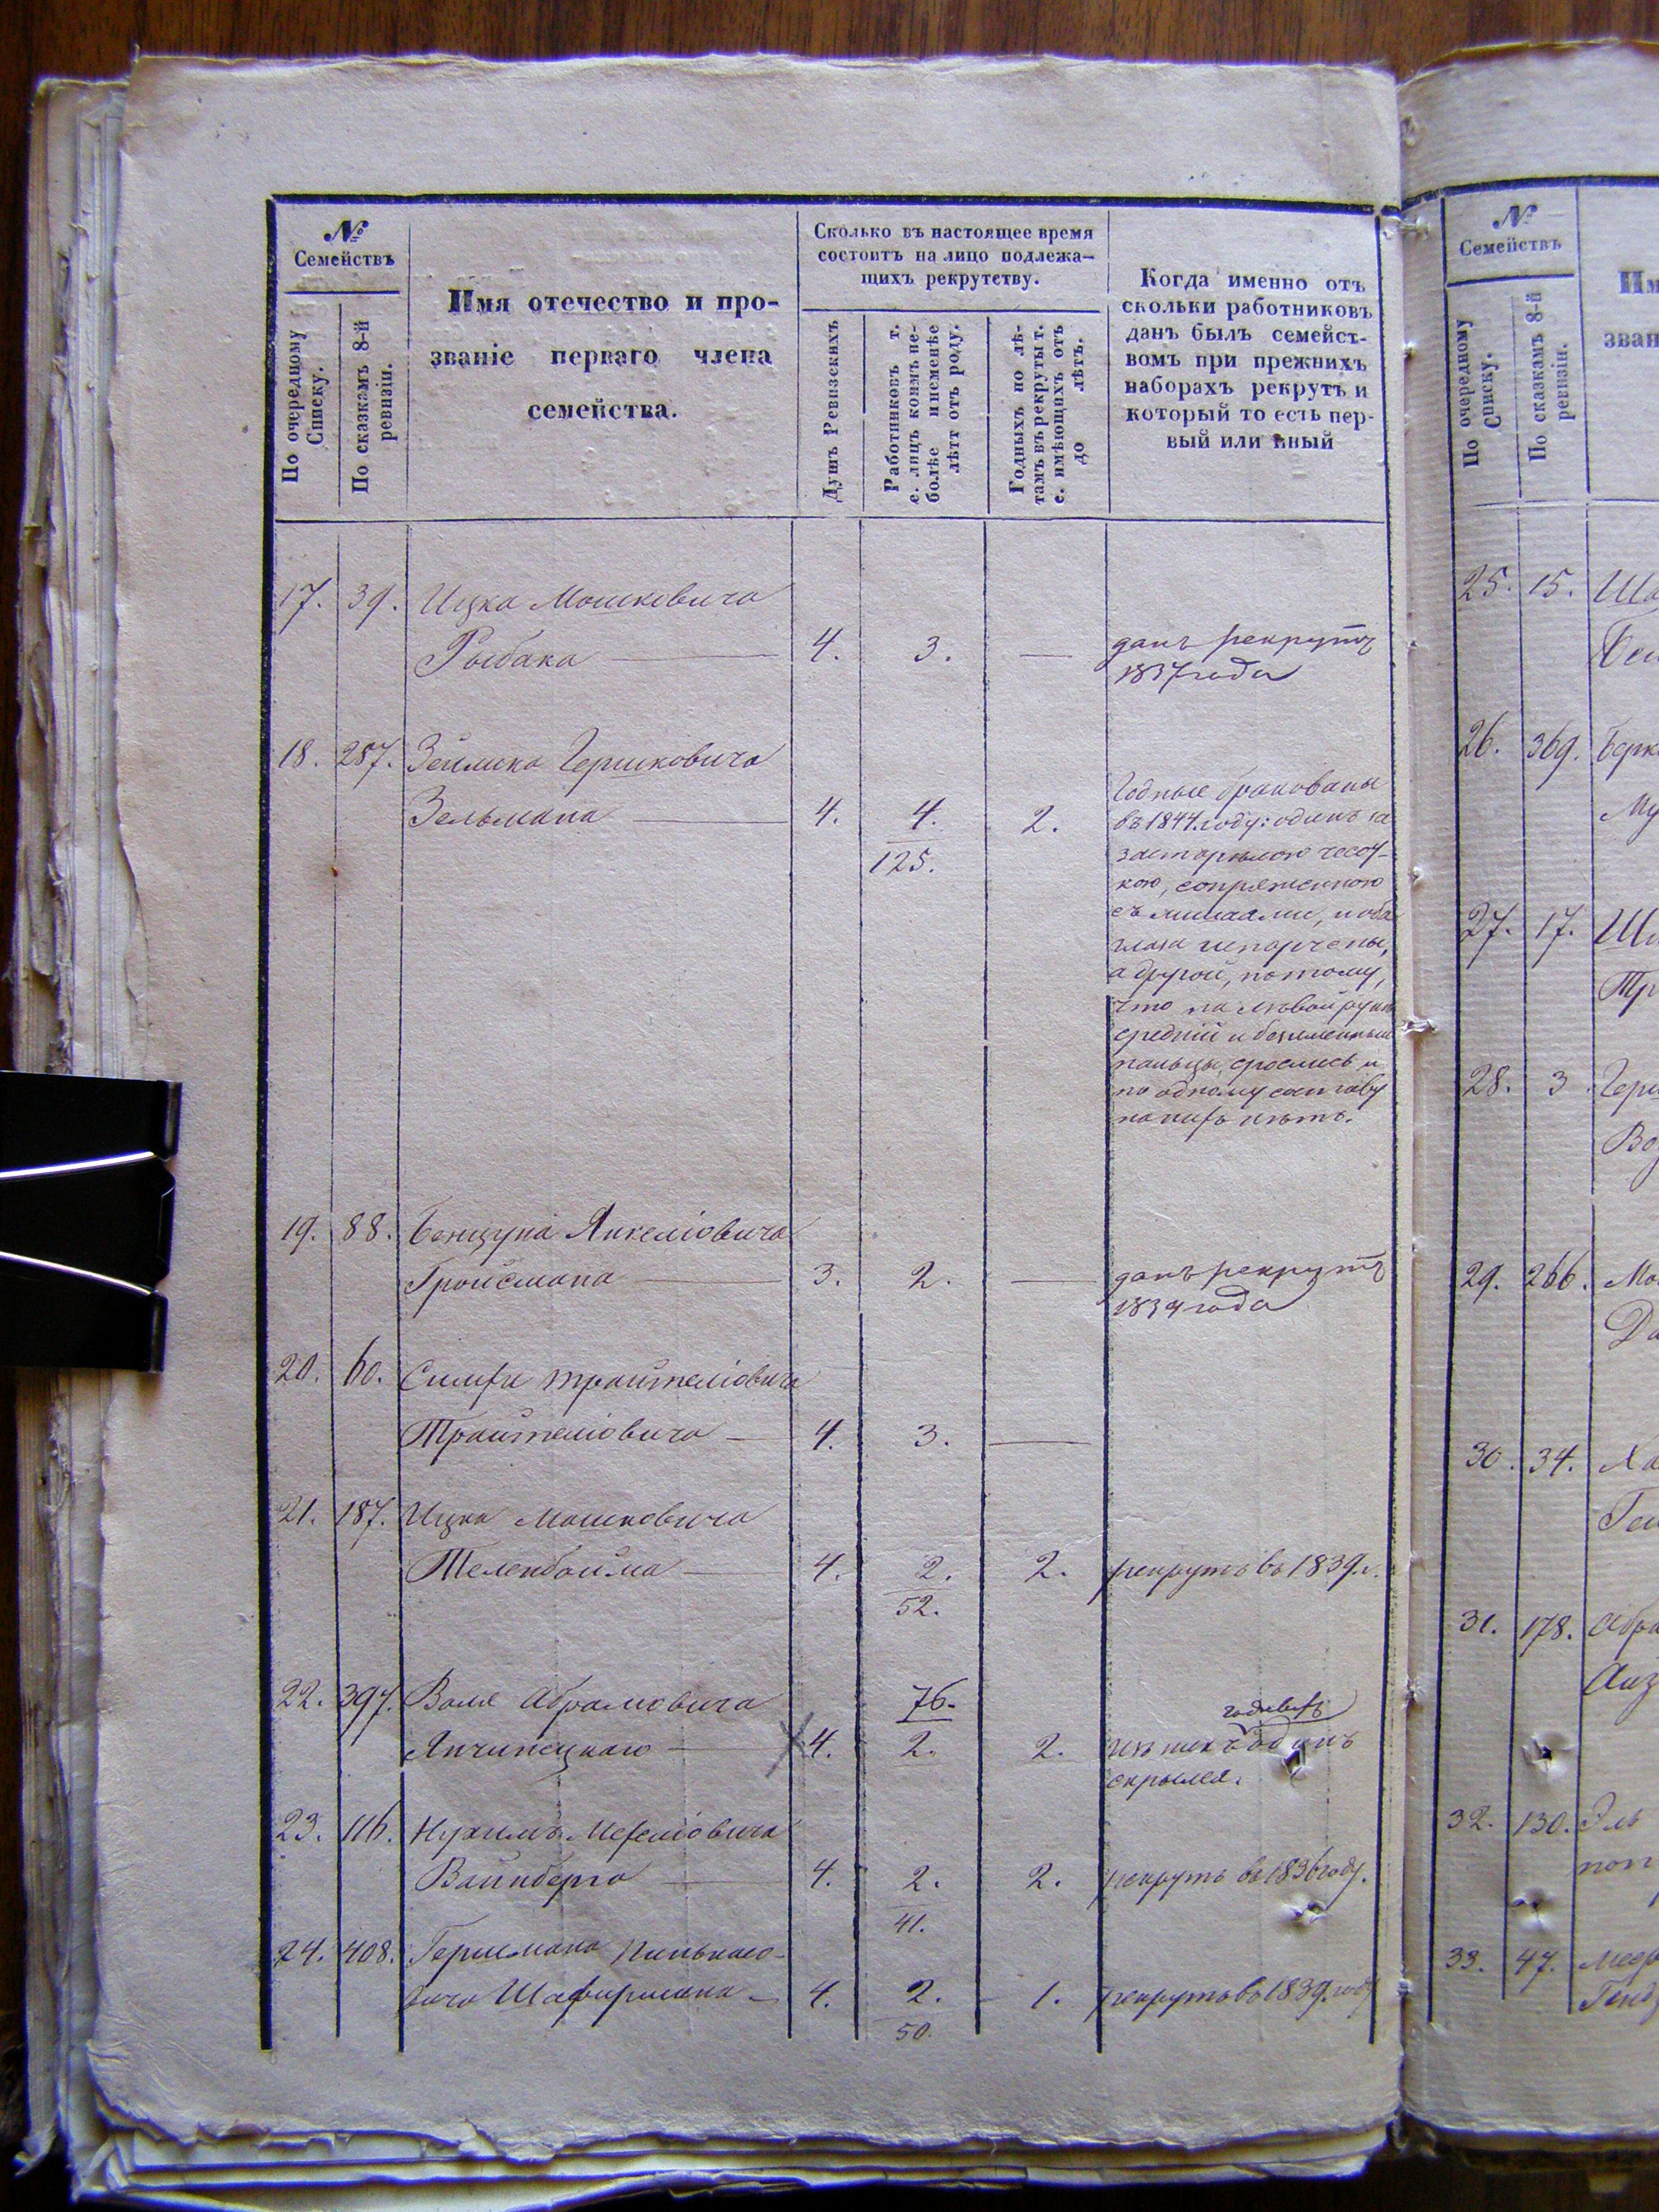 №
Семействъ
По очередному
Списку.
По сказкамъ 8-й
ревизіи.
Имя отечество и про-
званіе перваго члена
семейства.
Сколько въ настоящее время
состоитъ на лицо подлежа-
щихъ рекрутству.
Душъ Ревизскихъ
Работниковъ т.
е. лицъ коимъ не-
болѣе инеменѣе
лѣтт отъ роду.
Годныхъ по лѣ-
тамъ въ рекруты т.
е. имѣющихъ отъ
до лѣтъ.
Когда именно отъ
скольки работниковъ
данъ былъ семейст-
вомъ при прежнихъ
наборахъ рекрутъ и
который то есть пер-
вый или иный
17. 39. Ицка Мошковича
Рыбака 4. 3. — данъ рекрутъ
1837 года
18. 287. Зейлика Гершковича
Зельмана 4. 4. 2.
125.
Годные бракованы
въ 1844 году: одинъ за
застарѣлою чесот-
кою, сопряженною
съ лишаями, и оба
глаза испорчены,
а другой, потому,
что на лѣвой рукѣ
средній и безименный
пальцы срослись и
по одному составу
на нихъ нѣтъ.
19. 88. Бенцуна Янкеліовича
Гройсмана 3. 2. — данъ рекрутъ
1839 года
20. 60. Симхи Трайтеліовича
Трайтеліовича — 4. 3. —
21. 187. Ицка Мошковича
Теленбойма 4. 2. 2. рекрутъ въ 1839 г.
52.
22. 397. Воля Абрамовича 76.
Янчинецкаго 4. 2. 2. изъ нихъ одинъ
скрылся.
23. 116. Нухимъ Мехеліовича
Вайнберга 4. 2. 2. рекрутъ въ 1836 году.
41.
24. 408. Гершмана Пинькасо-
вича Шафирмана — 4. 2. 1. рекрутъ въ 1839 году
50.
№
Семействъ
По очередному
Списку.
По сказкамъ 8-й
ревизіи.
Им
зван
25. 15.
26. 369. Берк
Му
27. 17.
Тр
28. 3 Герш
Во
29. 266. Мо
Да
30. 34. Ха
31. 178. Абра
Айз
32. 130. Эль
33. 47.